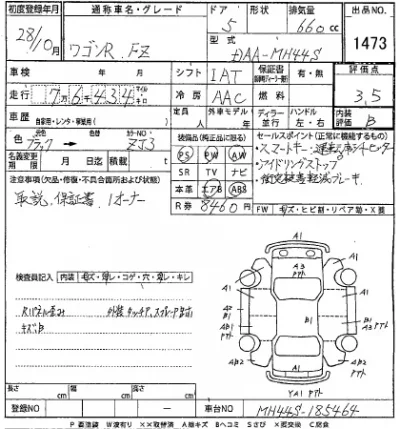 初度登録年月 通称車名・グレード ドア 形状 排気量 出品NO.
28/10月 ワゴンR. FZ 5 660cc 1473
型式 DAA-MH44S
車検 年 月 シフト IAT 保証書 有・無 評価点
走行 7万6,434 マイル キロ 冷房 AAC 燃料 3.5
車歴 自家用・レンタ・事業用( ) 定員 人 外車モデル 年 ディーラー 並行 ハンドル 左・右 内装評価 B
色 ブラック カラーNO ZJ3 装備品(純正品に限る) セールスポイント(正常に機能するもの)
PS PW AW ・スマートキー
名義変更期限 月 日迄 積載 t SR TV ナビ ・アイドリングストップ
注意事項(欠品・修復・不具合箇所および状態) 本革 エアB ABS ・衝突被害軽減ブレーキ
取説、保証書、1オーナー R券 8460円 FW キズ・ヒビ割・リペア跡・X要
A1
A3
A1
検査員記入 内装 キズ・汚レ・コゲ・穴・ヌレ・キレ
キズB
A2 B1 AB1 B1 A3
AB2 A1 AB2
YA1
長さ cm 幅 cm 高さ cm
登録NO － 車台NO MH44S-185464
P 要塗装 W波有り XX取替済 A線キズ Bヘコミ Sさび X要交換 C腐食